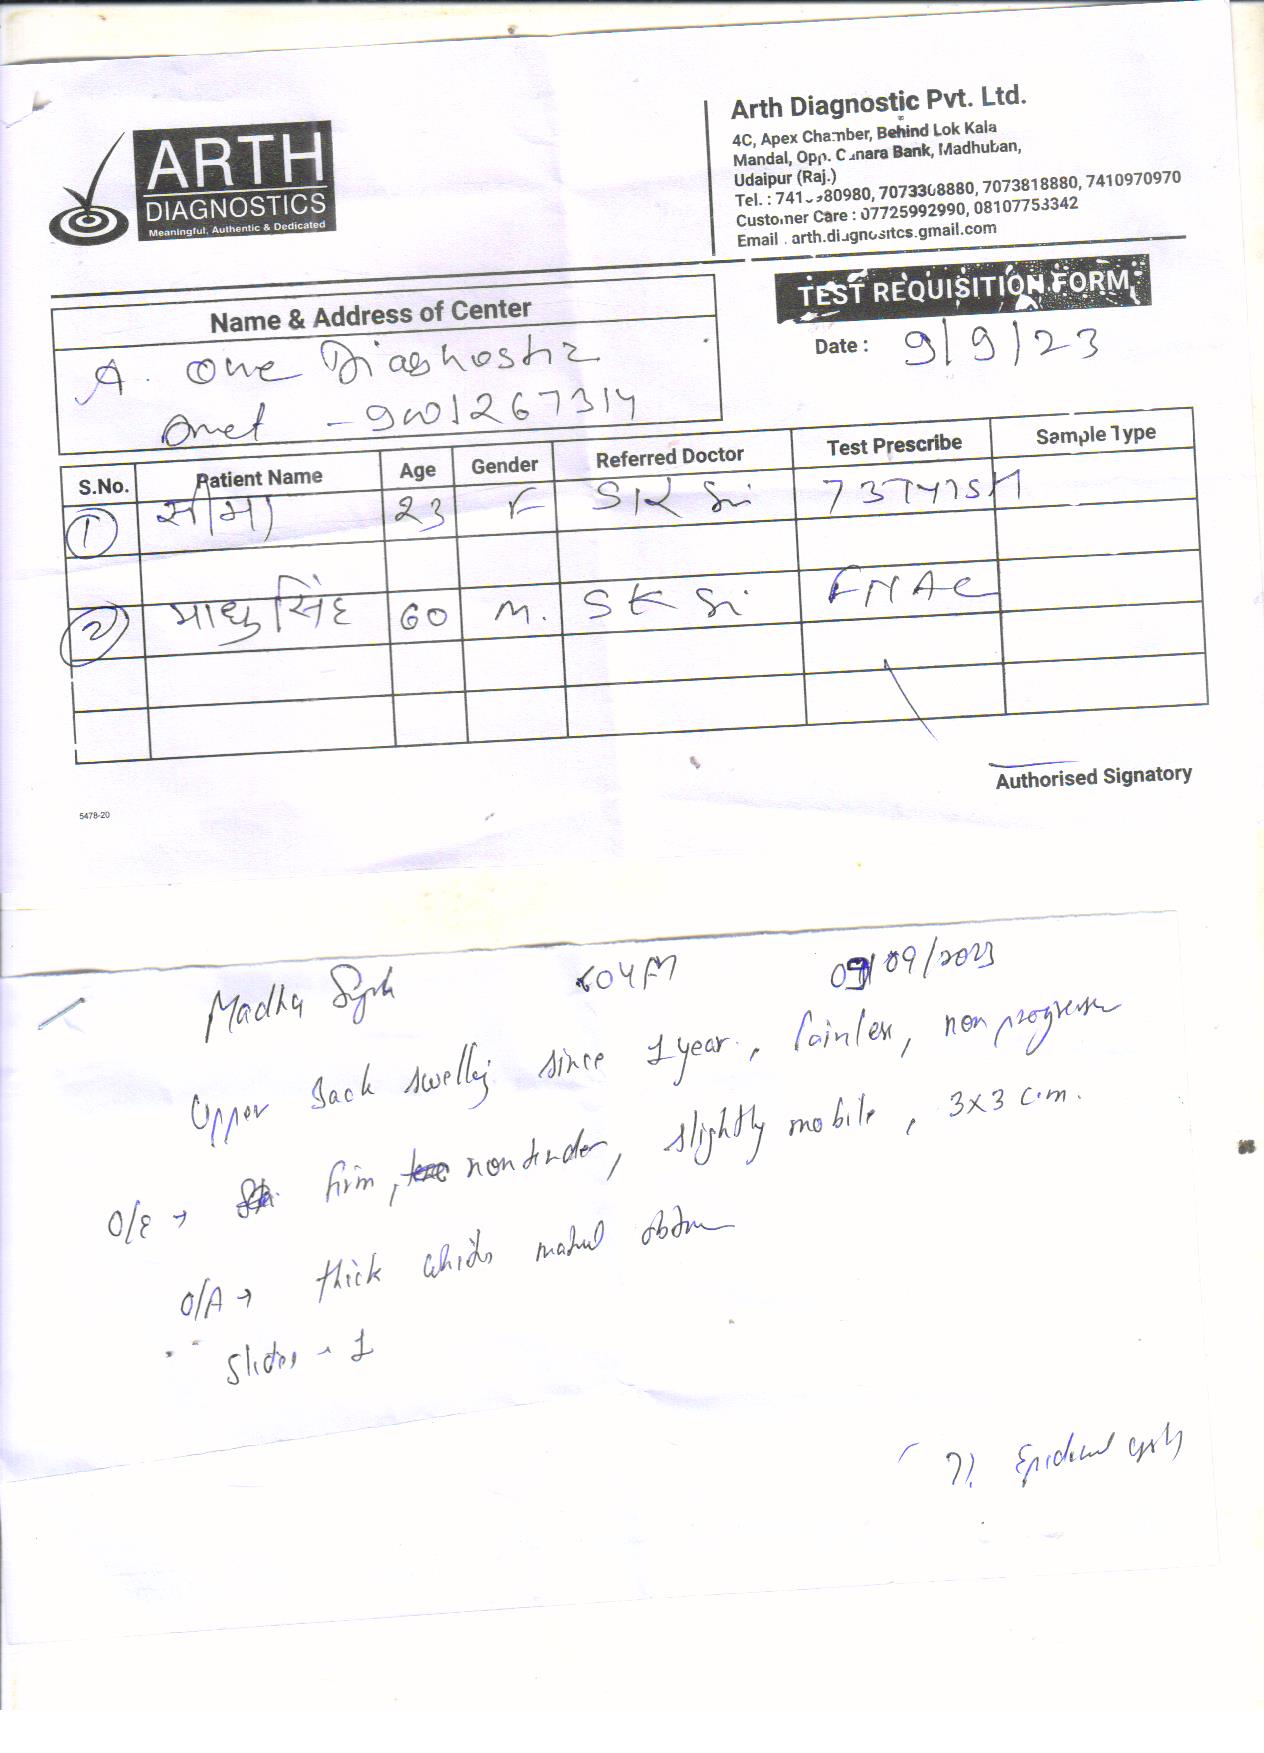 ARTH
DIAGNOSTICS
Meaningful, Authentic & Dedicated
Arth Diagnostic Pvt. Ltd.
4C, Apex Chamber, Behind Lok Kala
Mandal, Opp. Canara Bank, Madhuban,
Udaipur (Raj.)
Tel. : 741 80980, 7073308880, 7073818880, 7410970970
Customer Care : 07725992990, 08107753342
Email . arth.diagnositcs.gmail.com
TEST REQUISITION FORM
Name & Address of Center
Date : 9/9/23
A. One Diagnostic
Amet - 9001267314
S.No. Patient Name Age Gender Referred Doctor Test Prescribe Sample Type
1 23 F SK Sir
2 माधु सिंह 60 M. SK Sir FNAC
Authorised Signatory
5478-20
Madhu Singh 60Y/M 09/09/2023
Upper back swelling since 1 year, Painless, non progressive
O/E → firm, nontender, slightly mobile, 3x3 c.m.
O/A → thick whitis obtain
Slides - 1
?? Epidermal cyst